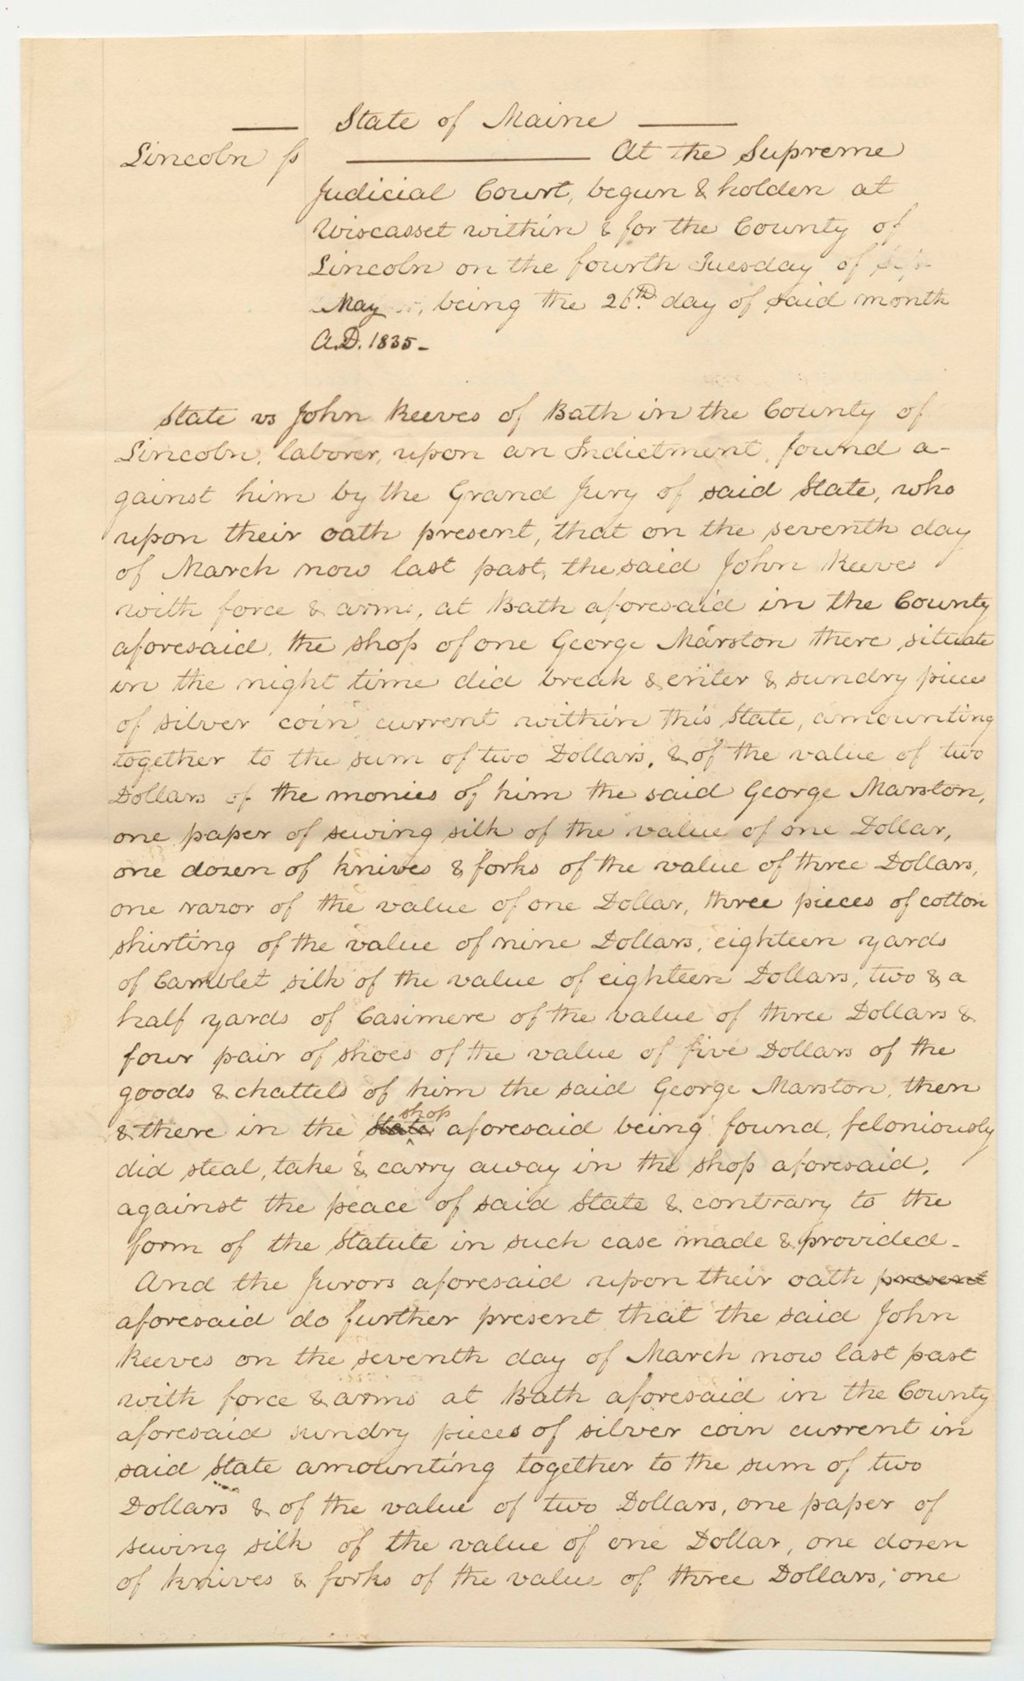 State of Maine
Lincoln ss At the Supreme
Judicial Court, begun & holden at
Wiscasset within & for the County of
Lincoln on the fourth Tuesday of
May, being the 26th. day of said month
A.D. 1835.
State vs John Reeves of Bath in the County of
Lincoln, laborer, upon an Indictment, found a-
gainst him by the Grand Jury of said State, who
upon their oath present, that on the seventh day
of March now last past, the said John Reeves
with force & arms, at Bath aforesaid in the County
aforesaid, the shop of one George Marston there, situate
in the night time did break & enter & sundry pieces
of silver coin current within this State, amounting
together to the sum of two Dollars, & of the value of two
Dollars of the monies of him the said George Marston,
one paper of sewing silk of the value of one Dollar,
one dozen of knives & forks of the value of three Dollars,
one razor of the value of one Dollar, three pieces of cotton
shirting of the value of nine Dollars, eighteen yards
of Camblet silk of the value of eighteen Dollars, two & a
half yards of Casimere of the value of three Dollars &
four pair of shoes of the value of five Dollars of the
goods & chattels of him the said George Marston, then
& there in the State shop aforesaid being found, feloniously
did steal, take & carry away in the shop aforesaid,
against the peace of said State & contrary to the
form of the Statute in such case made & provided-
And the Jurors aforesaid upon their oath present
aforesaid do further present that the said John
Reeves on the seventh day of March now last past
with force & arms at Bath aforesaid in the County
aforesaid sundry pieces of silver coin current in
said State amounting together to the sum of two
Dollars & of the value of two Dollars, one paper of
sewing silk of the value of one Dollar, one dozen
of knives & forks of the value of three Dollars, one